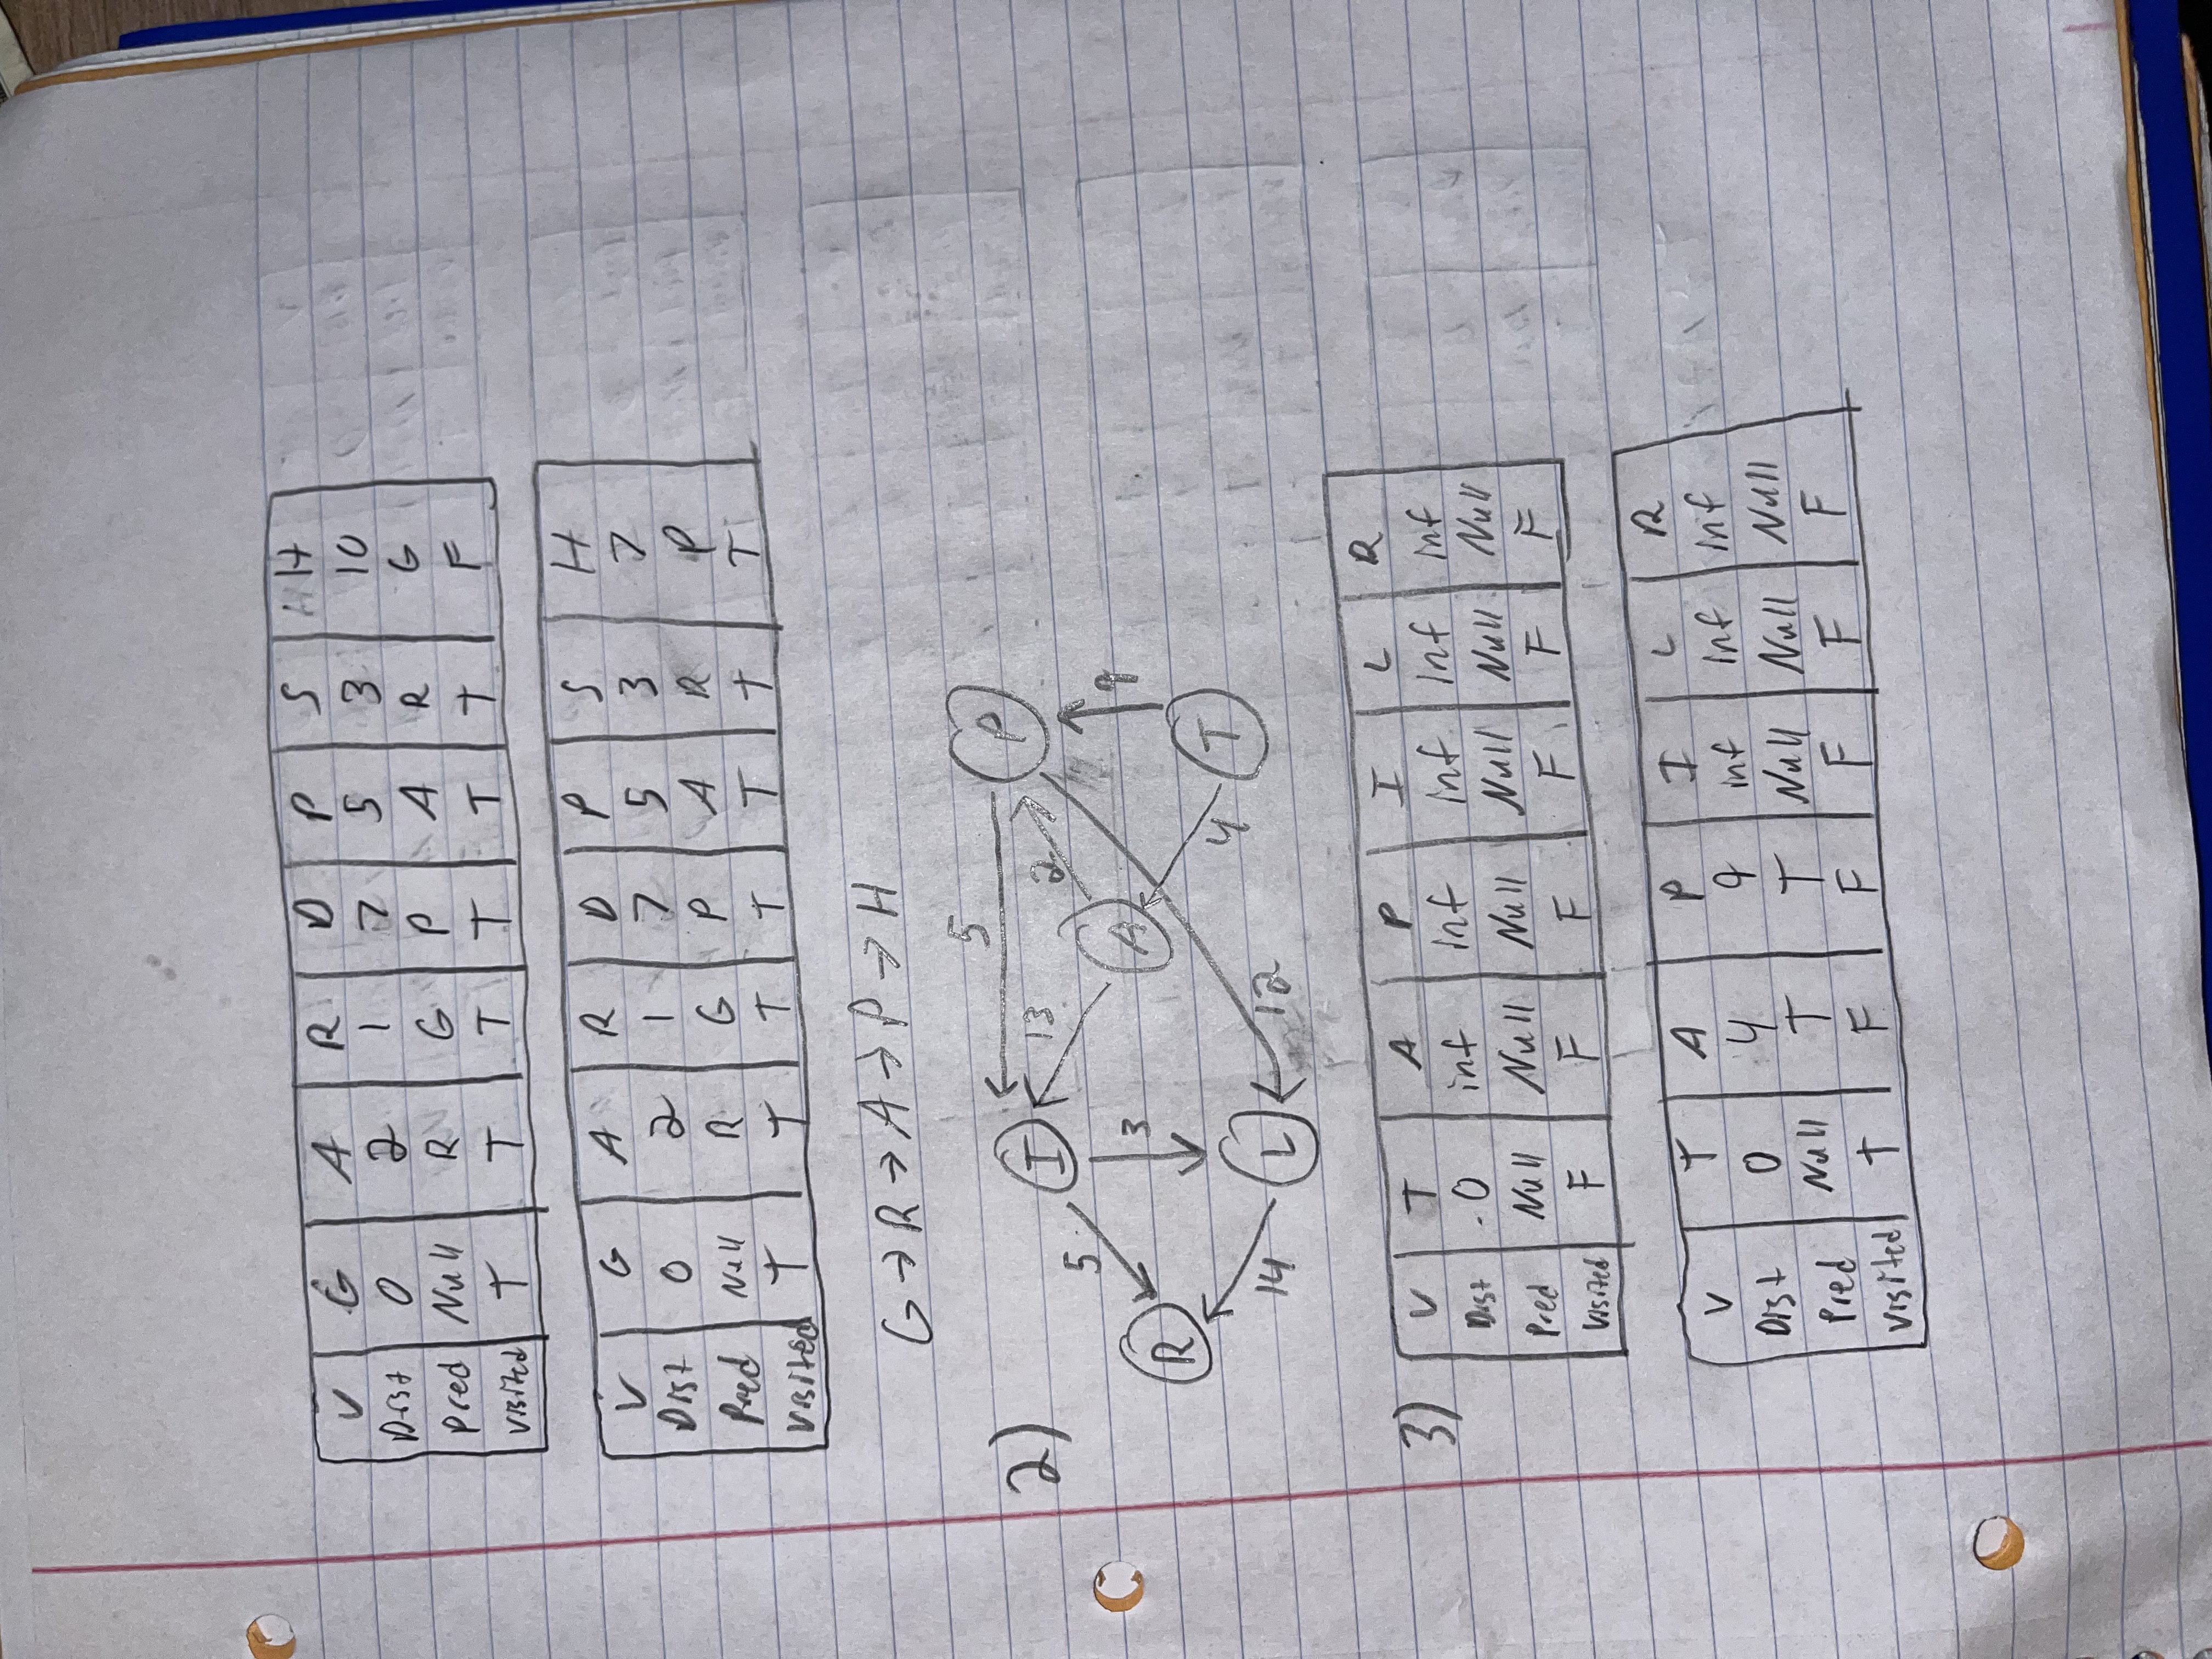 V G A R D P S H
Dist 0 2 1 7 5 3 10
Pred Null R G P A R G
Visited T T T T T T F
V G A R D P S H
Dist 0 2 1 7 5 3 7
Pred Null R G P A R P
Visited T T T T T T T
G → R → A → P → H
2)
5 P
I 13 2
5 A 9
R 3
4 T
14 L 12
3)
V T A P I L R
Dist 0 inf inf inf inf inf
Pred Null Null Null Null Null Null
Visited F F F F F F
V T A P I L R
Dist 0 4 9 inf inf inf
Pred Null T T Null Null Null
Visited T F F F F F